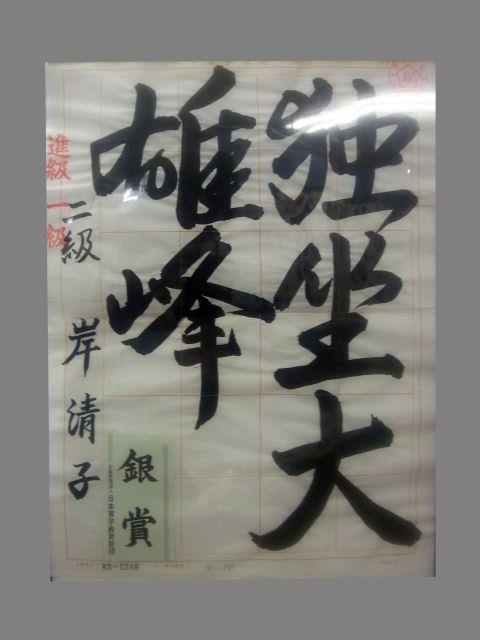 独坐大
雄峰
二級 岸清子
進級 一級
銀賞
日本習字教育財団
83-1249